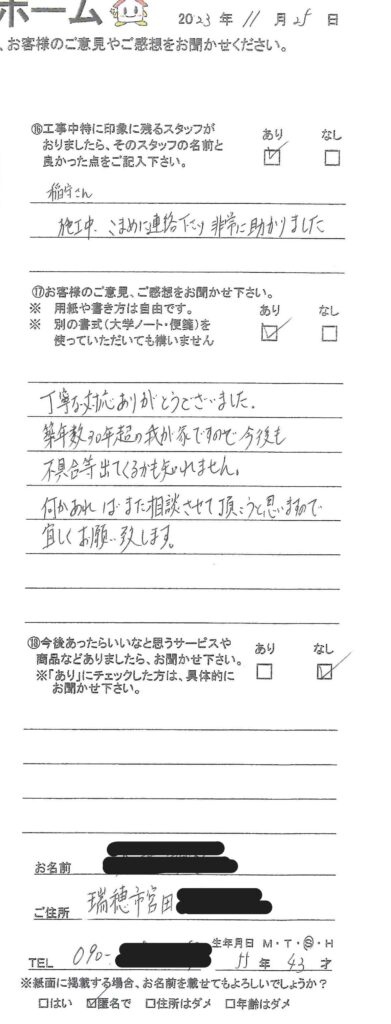 ホーム
2023 年 11 月 25 日
、お客様のご意見やご感想をお聞かせください。
⑯工事中特に印象に残るスタッフが
おりましたら、そのスタッフの名前と
良かった点をご記入下さい。
あり なし
稲守さん
施工中、こまめに連絡下さり非常に助かりました
⑰お客様のご意見、ご感想をお聞かせ下さい。
※ 用紙や書き方は自由です。
※ 別の書式(大学ノート・便箋)を
使っていただいても構いません
あり なし
丁寧な対応ありがとうございました。
築年数30年超の我が家ですので今後も
不具合等出てくるかも知れません。
何かあれば また相談させて頂こうと思いますので
宜しくお願い致します。
⑱今後あったらいいなと思うサービスや
商品などありましたら、お聞かせ下さい。
※「あり」にチェックした方は、具体的に
お聞かせ下さい。
あり なし
お名前
ご住所 瑞穂市宮田
生年月日 M・T・S・H
TEL 090- 55 年 43 才
※紙面に掲載する場合、お名前を載せてもよろしいでしょうか?
□はい ☑匿名で □住所はダメ □年齢はダメ